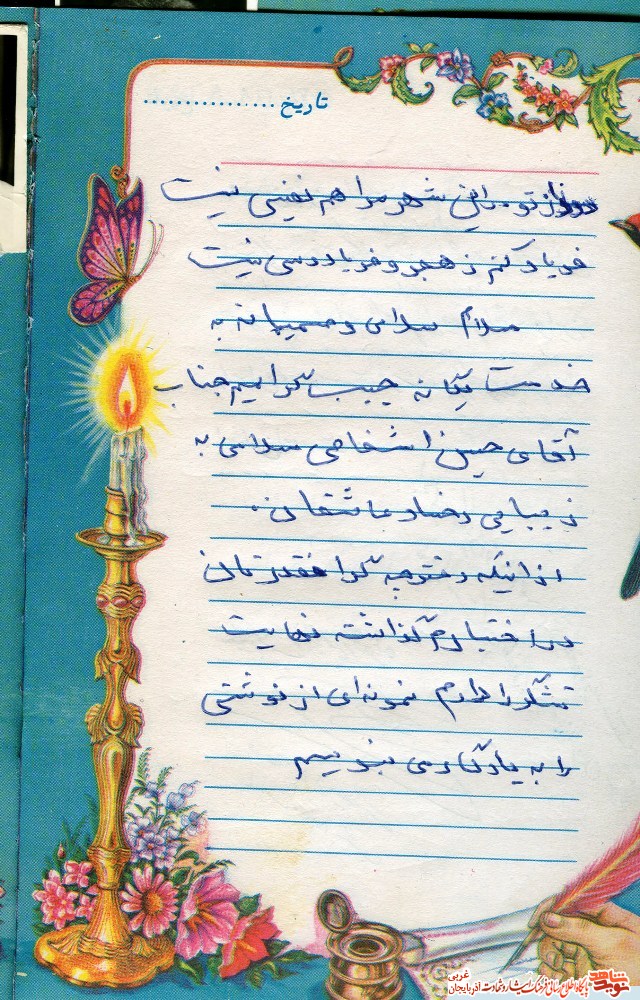 تاریخ ................
دور از تو در این شهر مرا هم نفسی نیست
فریاد کنم ز هجر و فریادرسی نیست
سلام سلامی و صمیمانه به
خدمت یگانه حبیب گرامیم جناب
آقای حسین اشخاصی سلامی به
زیبایی رخسار عاشقان.
از اینکه دفترچه گرانقدرتان
در اختیارم گذاشته نهایت
تشکر را دارم نمونه‌ای از نوشتی
را به یادگاری بنویسم
نوید شاهد آذربایجان غربی
پایگاه اطلاع رسانی فرهنگ ایثار و شهادت